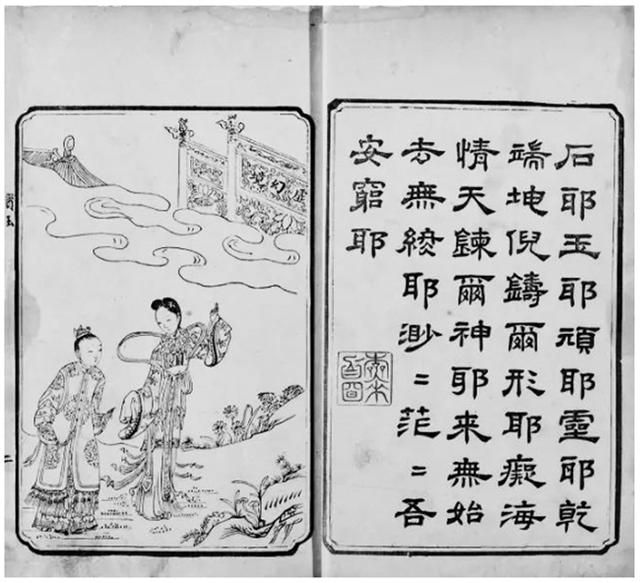 石耶玉耶頑耶靈耶乾
端坤倪鑄爾形耶癡海
情天鍊爾神耶來無始
去無終耶渺〻茫〻吾
安窮耶
虛幻境
二